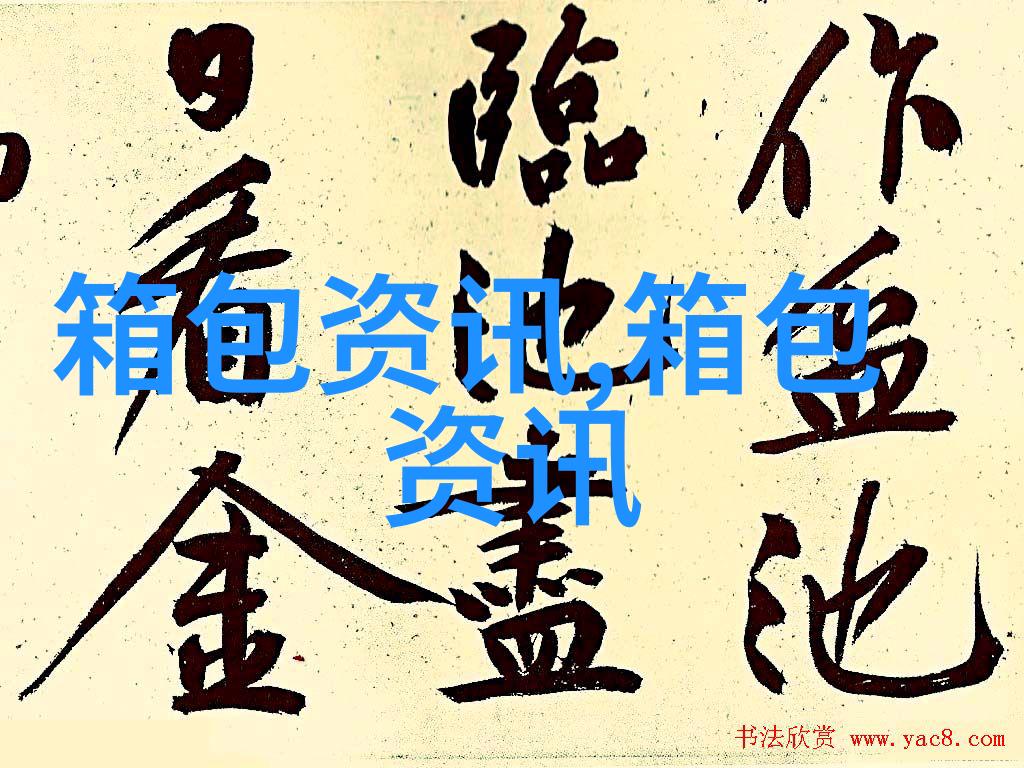 作盆池
臨池盡
日看金
箱包资讯,箱包
资讯
书法欣赏 www.yac8.com